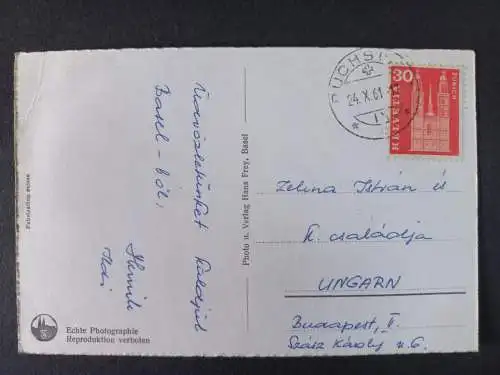 Üdvözletünket küldjük
Basel-ből.
Fabrication suisse
Echte Photographie
Reproduktion verboten
Photo u. Verlag Hans Frey, Basel
24.X.61
30
HELVETIA
ZÜRICH
Zelina István és
K. családja
UNGARN
Budapest, II.
Szász Károly u. 6.